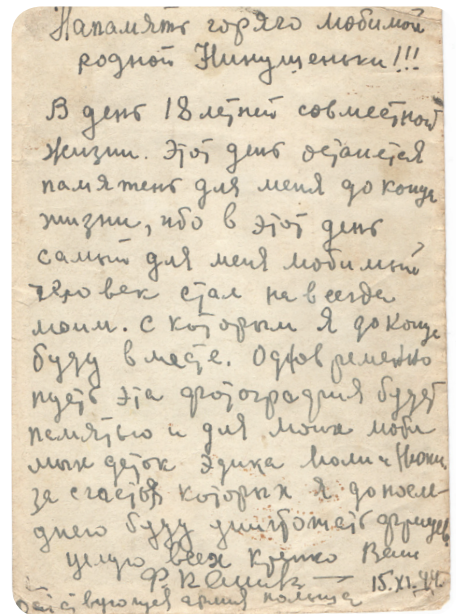 Напамять горяго любимой
родной Нинушеньки!!!
В день 18 летней совместной
жизни. Этот день останется
памятень для меня до конца
жизни, ибо в этот день
самый для меня любимый
человек стал навсегда
моим. с которым я до конца
буду вместе. Одновременно
пусть эта фотография будет
памятью и для моих люби
мых деток Эдика Юли и
за счастья которых я до после-
днего буду уничтожать фрицев
целую всех крепко Ваш
15.XI.44.
Действующая армия польша